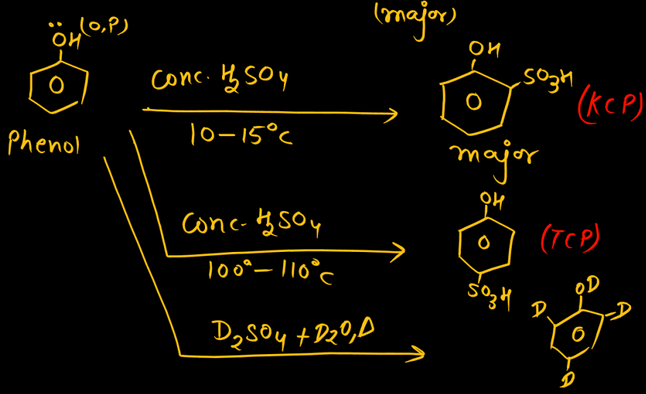 (major)
ÖH (O,P)
Phenol
Conc. H2SO4
10-15°C
OH
SO3H
(KCP)
major
Conc. H2SO4
100°-110°C
OH
SO3H
(TCP)
D2SO4 + D2O, Δ
OD
D
D
D